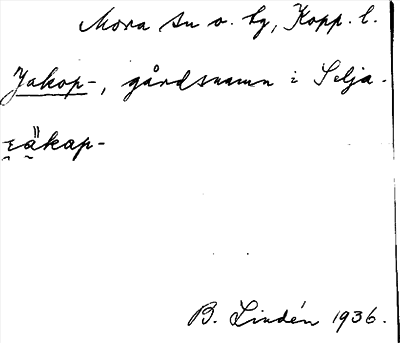 Mora sn o. tg, Kopp. l.
Jakop-, gårdsnamn i Selja.
B. Lindén 1936.